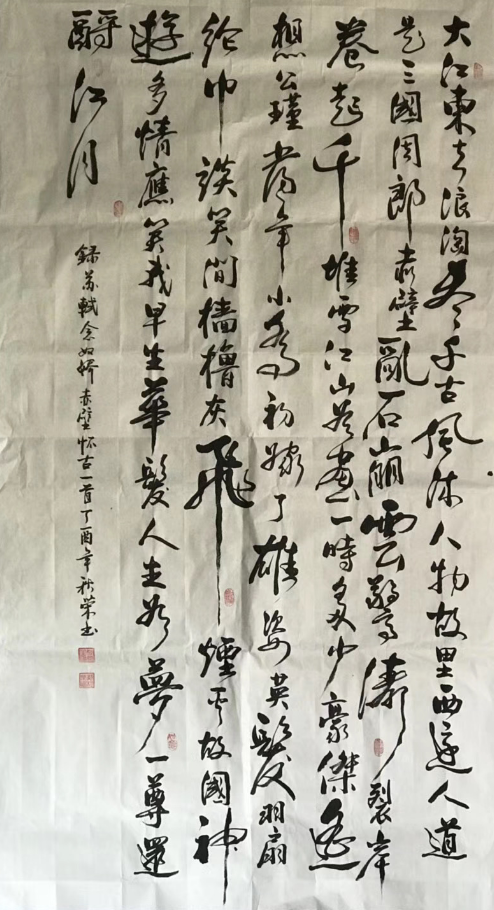 大江東去浪淘尽千古風流人物故里西邊人道
是三國周郎赤壁亂石崩雲驚濤裂岸
卷起千堆雪江山如畫一時多少豪傑遙
想公瑾當年小喬初嫁了雄姿英髮羽扇
綸巾談笑間檣櫓灰飛煙滅故國神
遊多情應笑我早生華髮人生如夢一尊還
酹江月
録苏軾念奴娇赤壁怀古一首丁酉年秋荣书